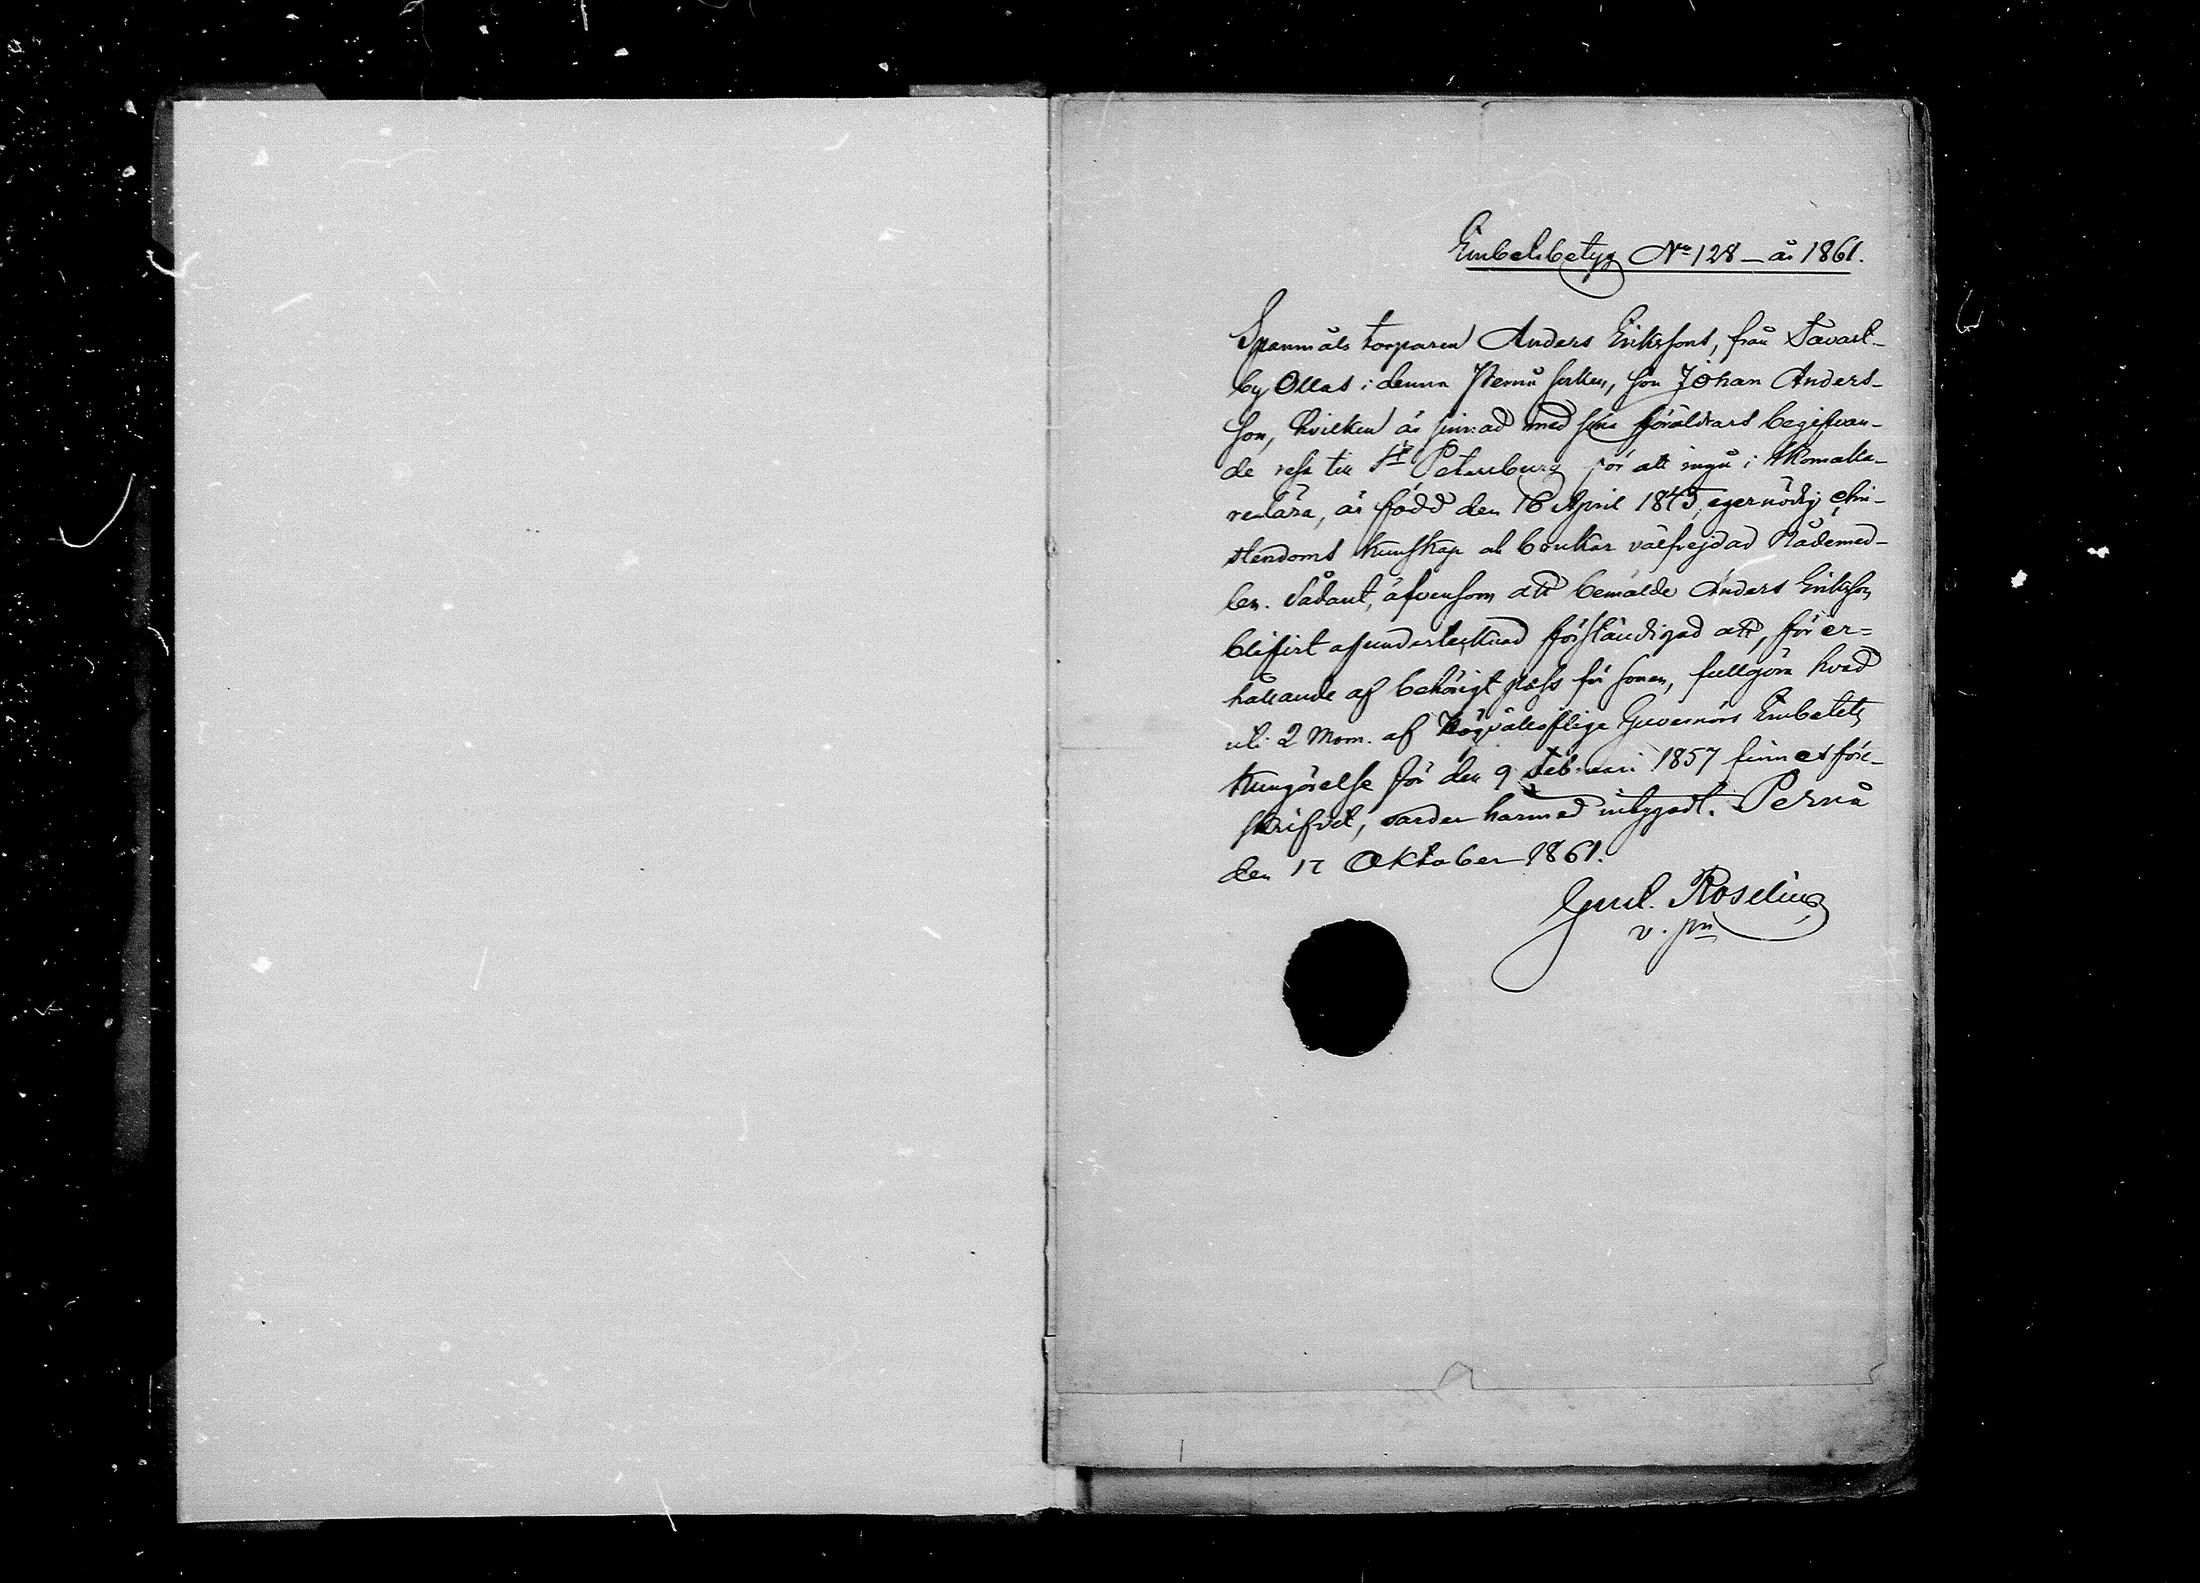 Embetsbetyg No 128 - år 1861.
Spanmåls torparen Anders Erikssons, från Sävarl-
by Ollas i denna Pernå socken, son Johan Anders-
son, hvilken är sinnad med sina föräldrars begifvan-
de resa till St Petersburg för att ingå i skomaka-
relära, är född den 16 April 1845, eger nödig chri-
stendoms kunskap och brukar välfrejdad Nådemed-
len. Sådant, äfvensom att bemälde Anders Eriksson
blifvit af undertecknad förständigad att, för er-
hållande af behörigt pass för sonen, fullgöra hvad
uti 2 Mom. af Högvälloflige Guvernörs Embetets
Kungörelse för den 9 Februari 1857 finnes före-
skrifvit, varder härmed intygadt. Pernå
den 17 Oktober 1861.
Gust. Roselius
v. pn